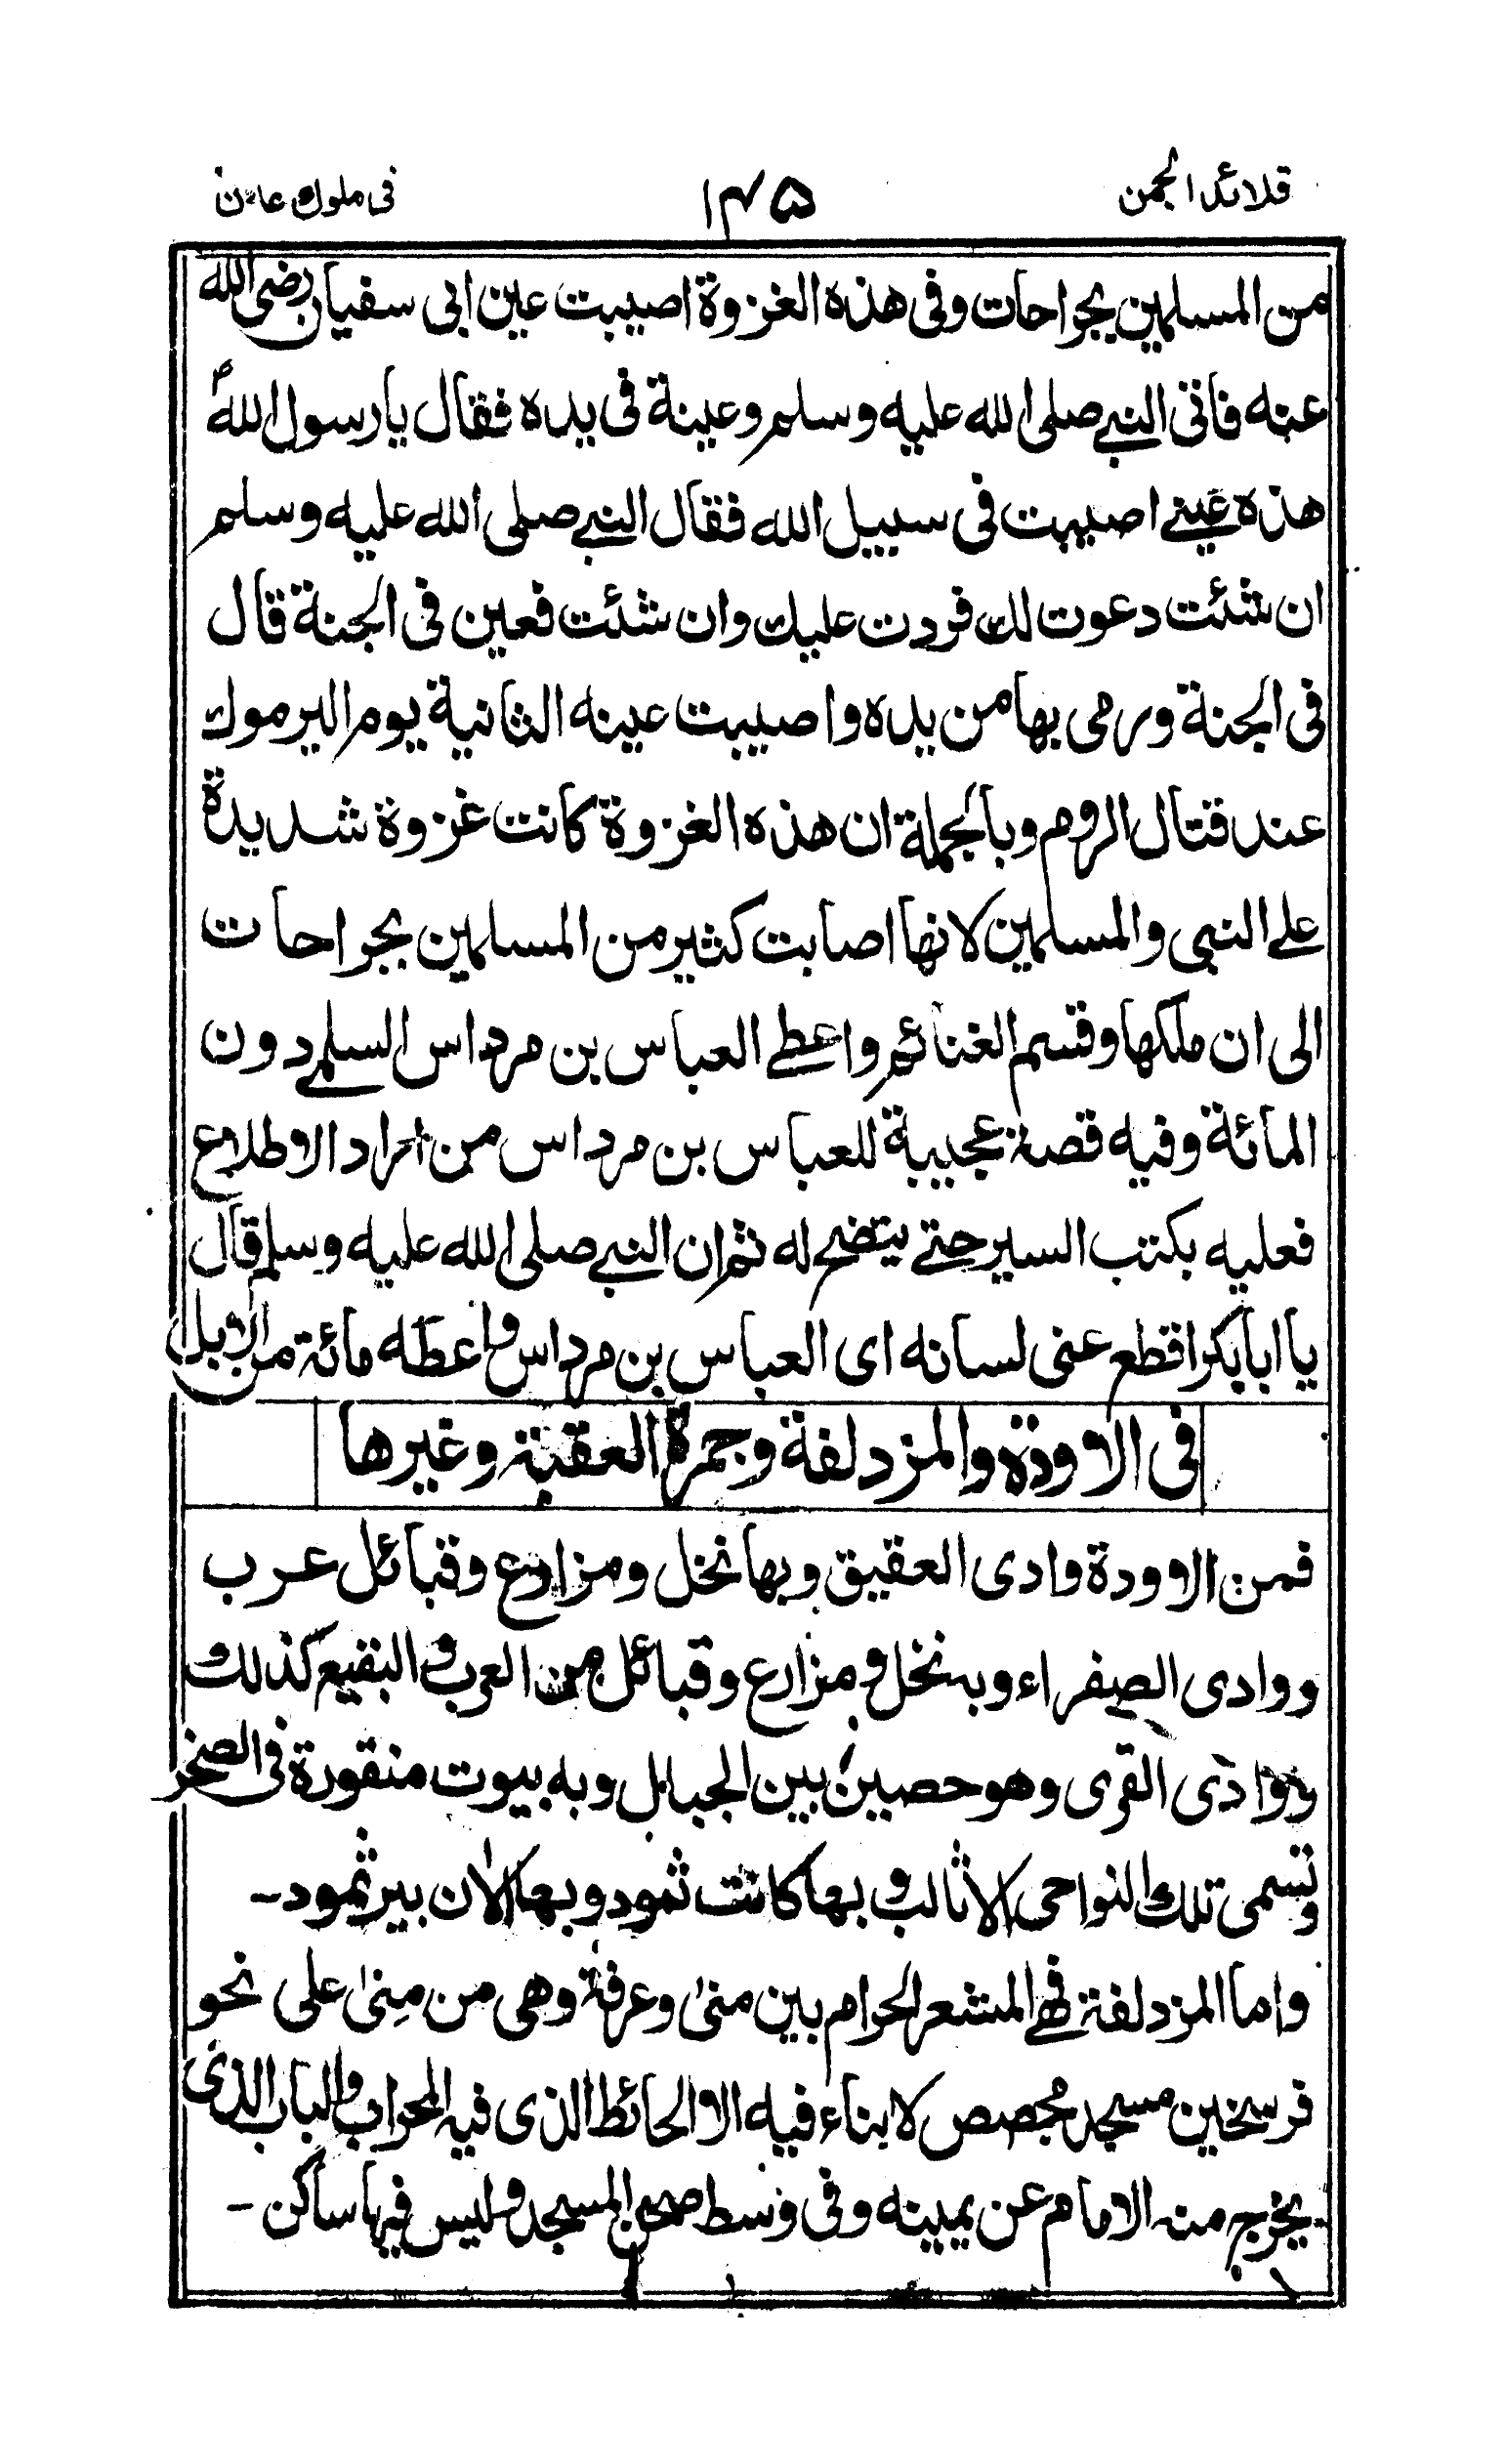 قلائد الجمن ١٣٥ فى ملوك عدن
من المسلمين بجراحات وفى هذه الغزوة اصيبت عين ابى سفيان رضى الله
عنه فاتى النبى صلى الله عليه وسلم وعينة فى يده فقال يا رسول الله ؐ
هذه عينى اصيبت فى سبيل الله فقال النبى صلى الله عليه وسلم
ان شئت دعوت لك فردت عليك وان شئت فعين فى الجنة قال
فى الجنة ورمى بها من يده واصيبت عينه الثانية يوم اليرموك
عند قتال الروم وبالجملة ان هذه الغزوة كانت غزوة شديدة
على النبى والمسلمين لانها اصابت كثير من المسلمين بجراحات
الى ان ملكها وقسم الغنائم واعطى العباس بن مرداس السلمى دون
المائة وفيه قصة عجيبة للعباس بن مرداس من اراد الاطلاع
فعليه بكتب السير حتى يتضح له ثم ان النبى صلى الله عليه وسلم قال
يا ابا بكر اقطع عنى لسانه اى العباس بن مرداس واعطه مائة من الابل
فى الاودة والمزدلفة وجمرة العقبة وغيرها
فمن الاوودة وادى العقيق وبها نخل ومزارع وقبائل عرب
ووادى الصفراء وبه نخل ومزارع وقبائل من العرب والبقيع كذلك
ووادى القرى وهو حصين بين الجبال وبه بيوت منقورة فى الصخر
وتسمى تلك النواحى الاثالب وبها كانت ثمود وبها الان بير ثمود -
واما المزدلفة فهى المشعر الحرام بين منىٰ وعرفة وهى من مِنىٰ على نحو
فرسخين مسجد مجصص لا بناء فيه الا الحائط الذى فيه المحراب والباب الذى
يخرج منه الامام عن يمينه وفى وسط صحن المسجد وليس فيها ساكن -